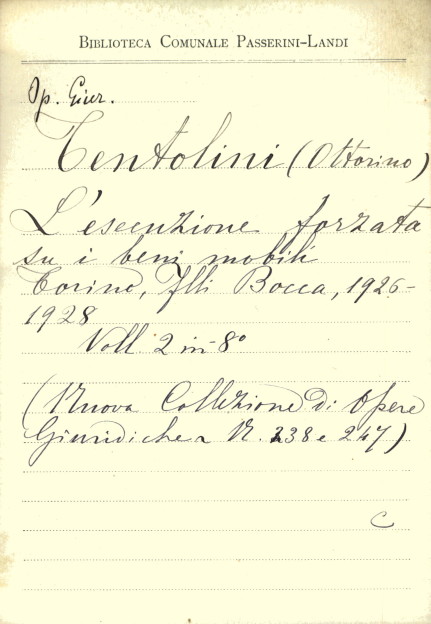 BIBLIOTECA COMUNALE PASSERINI-LANDI
Op. Giur.
Tentolini (Ottorino)
L'esecuzione forzata
su i beni mobili
Torino, Flli Bocca, 1926-
1928
Voll. 2 in 8°
(Nuova Collezione di Opere
Giuridiche N. 238 e 247)
C